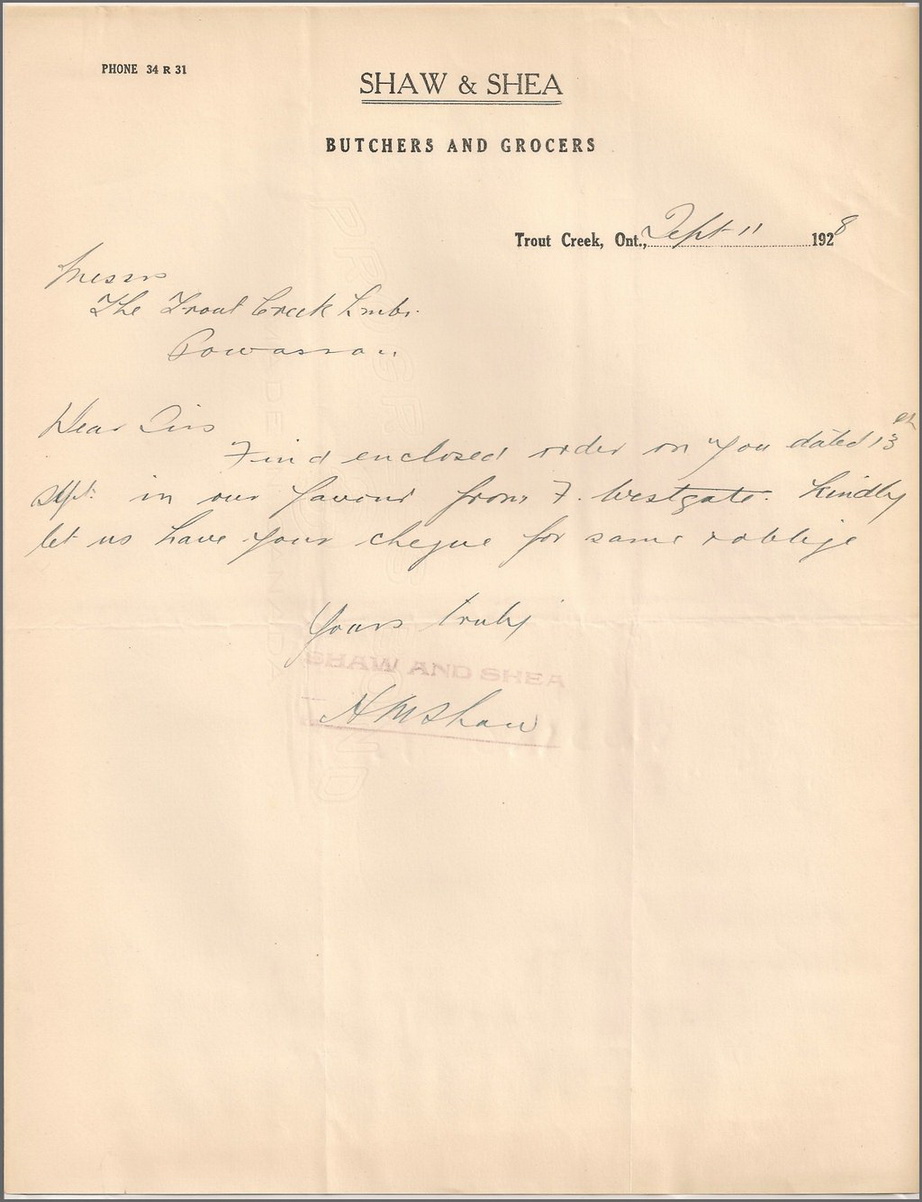 PHONE 34 R 31
SHAW & SHEA
BUTCHERS AND GROCERS
Trout Creek, Ont., Sept 11 1928
Messrs
The Trout Creek Lmbr.
Powassan.
Dear Sirs
Find enclosed order on you dated 13th
Sept. in our favour from F. Westgate. Kindly
let us have your cheque for same & oblige
Yours truly
SHAW AND SHEA
H M Shaw